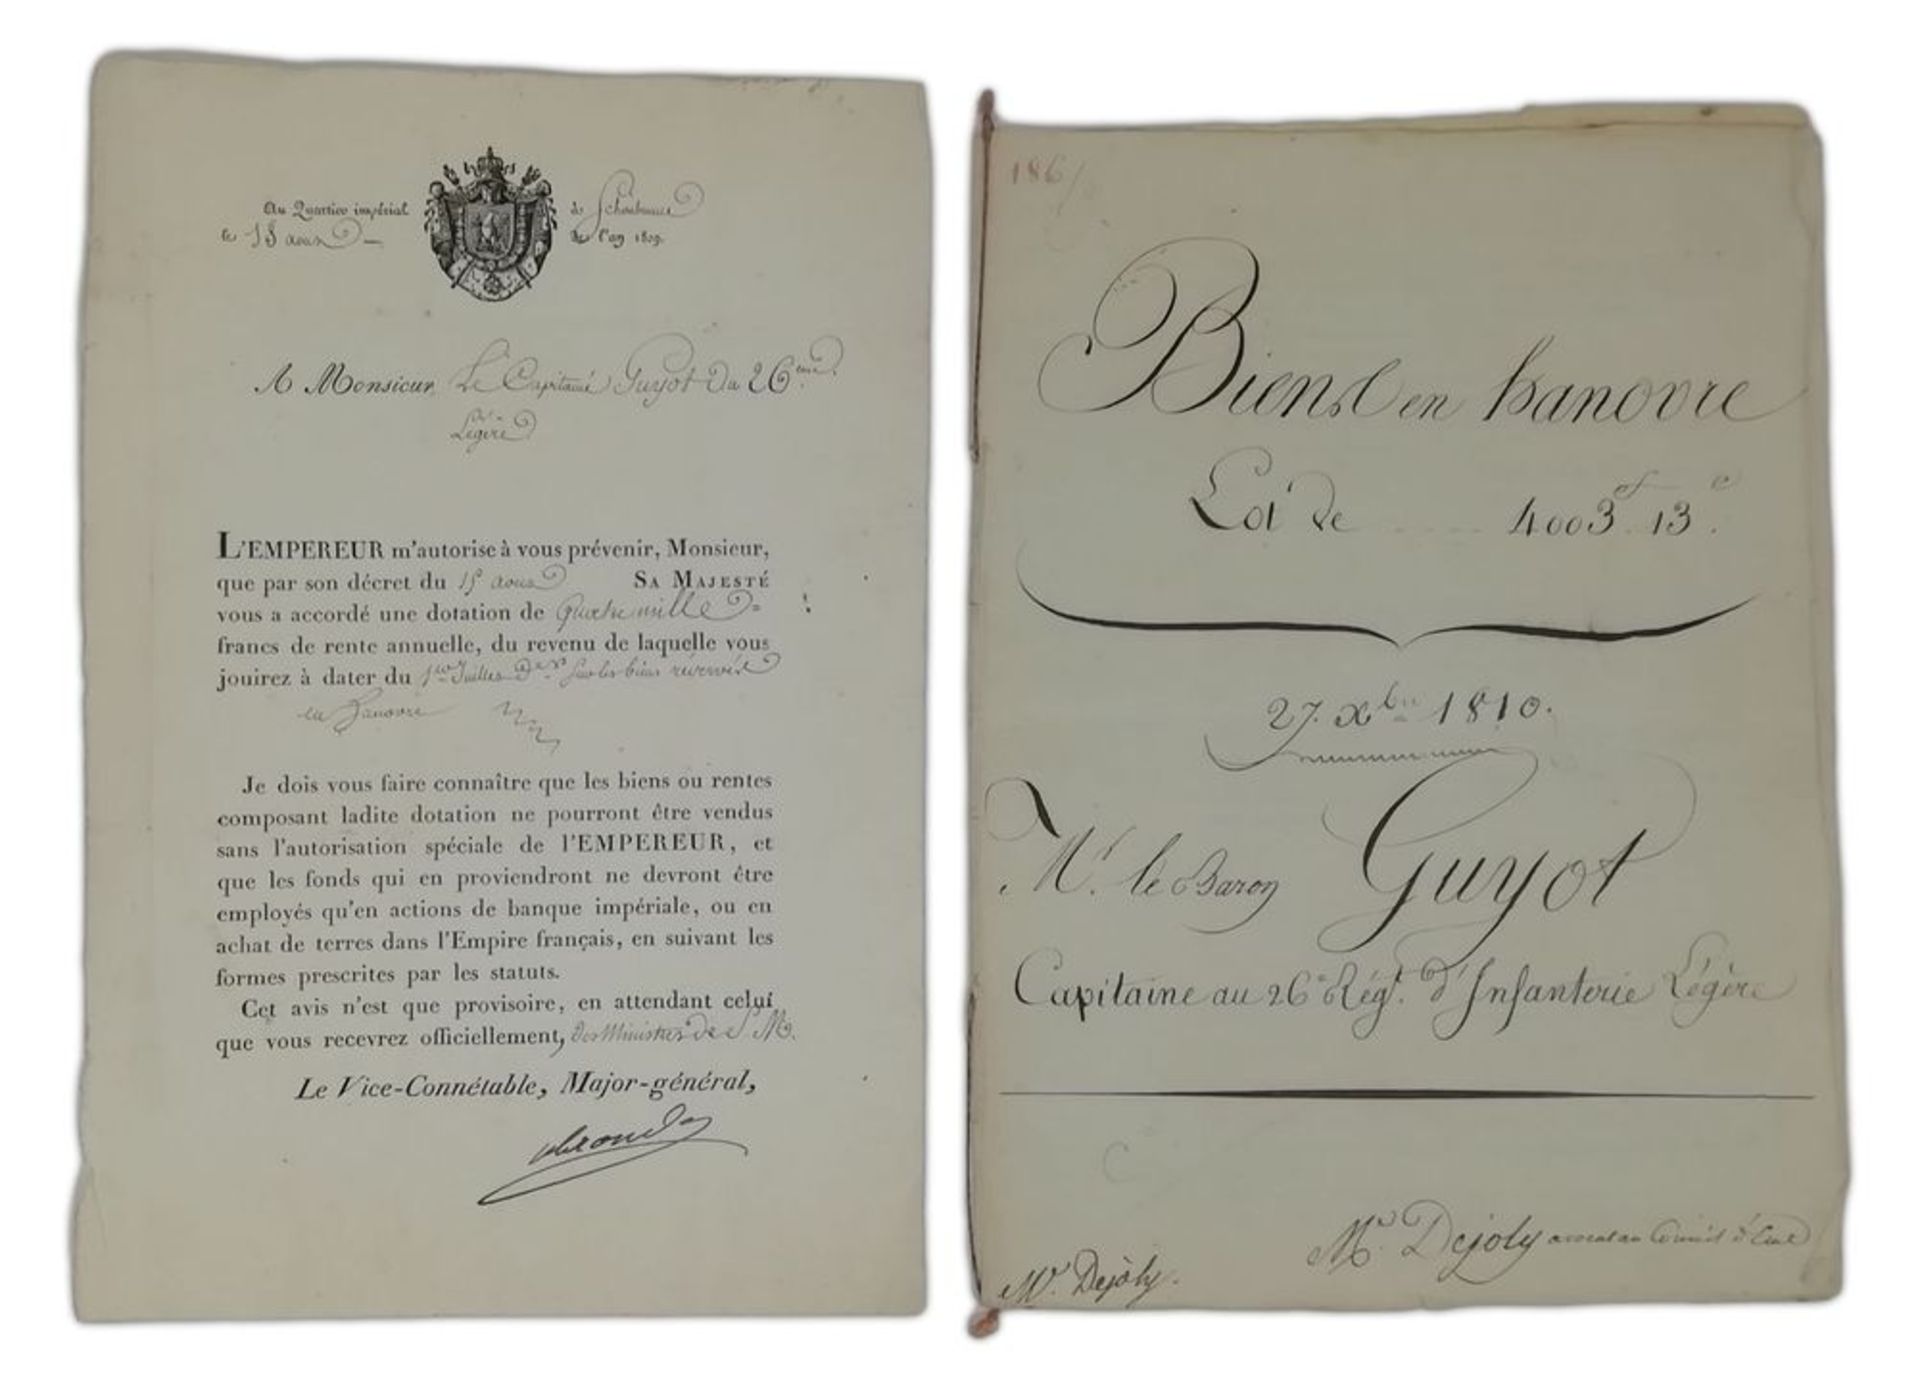 Au Quartier impérial
de Schönbrunn
le 18 aoust
de l'an 1809.
A Monsieur Le Capitaine Guyot du 26eme
Légère
L'EMPEREUR m'autorise à vous prévenir, Monsieur,
que par son décret du 15 aoust SA MAJESTÉ
vous a accordé une dotation de Quatre mille
francs de rente annuelle, du revenu de laquelle vous
jouirez à dater du 1er Juillet der sur les biens réservés
en Hanovre
Je dois vous faire connaître que les biens ou rentes
composant ladite dotation ne pourront être vendus
sans l'autorisation spéciale de l'EMPEREUR, et
que les fonds qui en proviendront ne devront être
employés qu'en actions de banque impériale, ou en
achat de terres dans l'Empire français, en suivant les
formes prescrites par les statuts.
Cet avis n'est que provisoire, en attendant celui
que vous recevrez officiellement, des Ministres de S. M.
Le Vice-Connétable, Major-général,
186
Biens en hanovre
Lot de 4003f 13c.
27. Xbre 1810.
Mr. le Baron Guyot
Capitaine au 26e Régt. d'Infanterie Légère
Mr. Dejoly avocat au Conseil d'Etat
Mr. Dejoly.